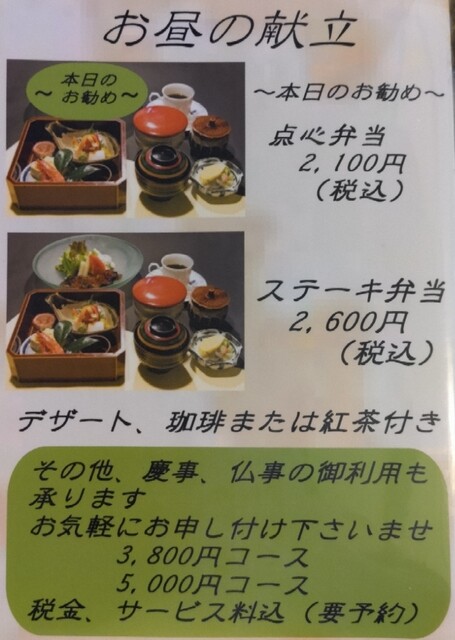 お昼の献立
～本日の
お勧め～
～本日のお勧め～
点心弁当
2,100円
(税込)
ステーキ弁当
2,600円
(税込)
デザート、珈琲または紅茶付き
その他、慶事、仏事の御利用も
承ります
お気軽にお申し付け下さいませ
3,800円コース
5,000円コース
税金、サービス料込(要予約)